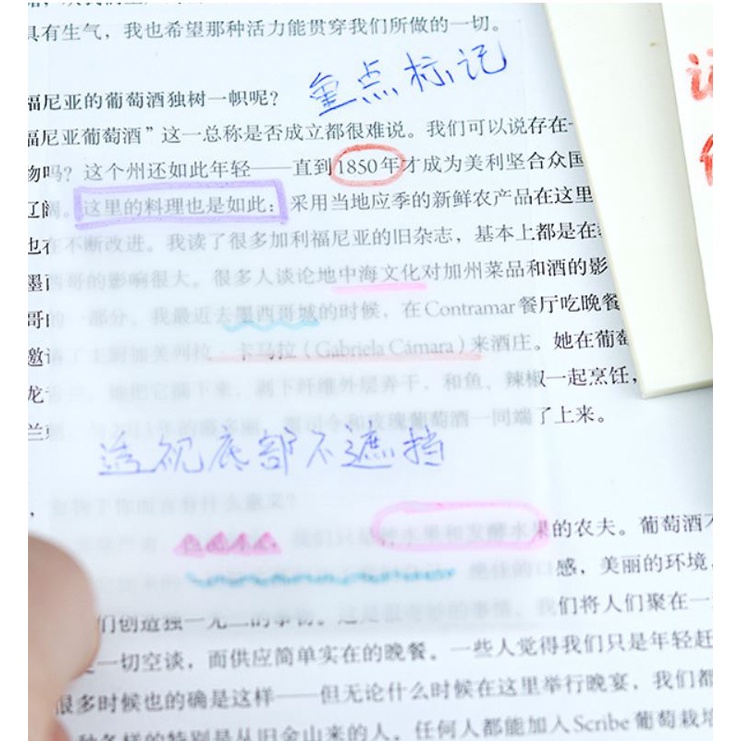 具有生气，我也希望那种活力能贯穿我们所做的一切。
重点标记
福尼亚的葡萄酒独树一帜呢？
福尼亚葡萄酒”这一总称是否成立都很难说。我们可以说存在
物吗？这个州还如此年轻——直到1850年才成为美利坚合众国
辽阔。这里的料理也是如此：采用当地应季的新鲜农产品在这里
也在不断改进。我读了很多加利福尼亚的旧杂志，基本上都是在
墨西哥的影响很大。很多人谈论地中海文化对加州菜品和酒的影
哥的一部分。我最近去墨西哥城的时候，在Contramar餐厅吃晚餐
邀请了主厨加芙列拉·卡马拉（Gabriela Cámara）来酒庄。她在葡萄
龙 她把它摘下来，剥下纤维外层弄干，和鱼、辣椒一起烹饪，
兰 和玫瑰葡萄酒一同端了上来。
透视底部不遮挡
食物于你而言有什么意义？
水果和发酵水果的农夫。葡萄酒不
绝佳的口感，美丽的环境，
们创造独一无二的事物。这是很奇妙的事情。我们将人们聚在一
一切空谈，而供应简单实在的晚餐。一些人觉得我们只是年轻赶
很多时候也的确是这样——但无论什么时候在这里举行晚宴，我们都
种各样的特别是从旧金山来的人。任何人都能加入Scribe葡萄栽培